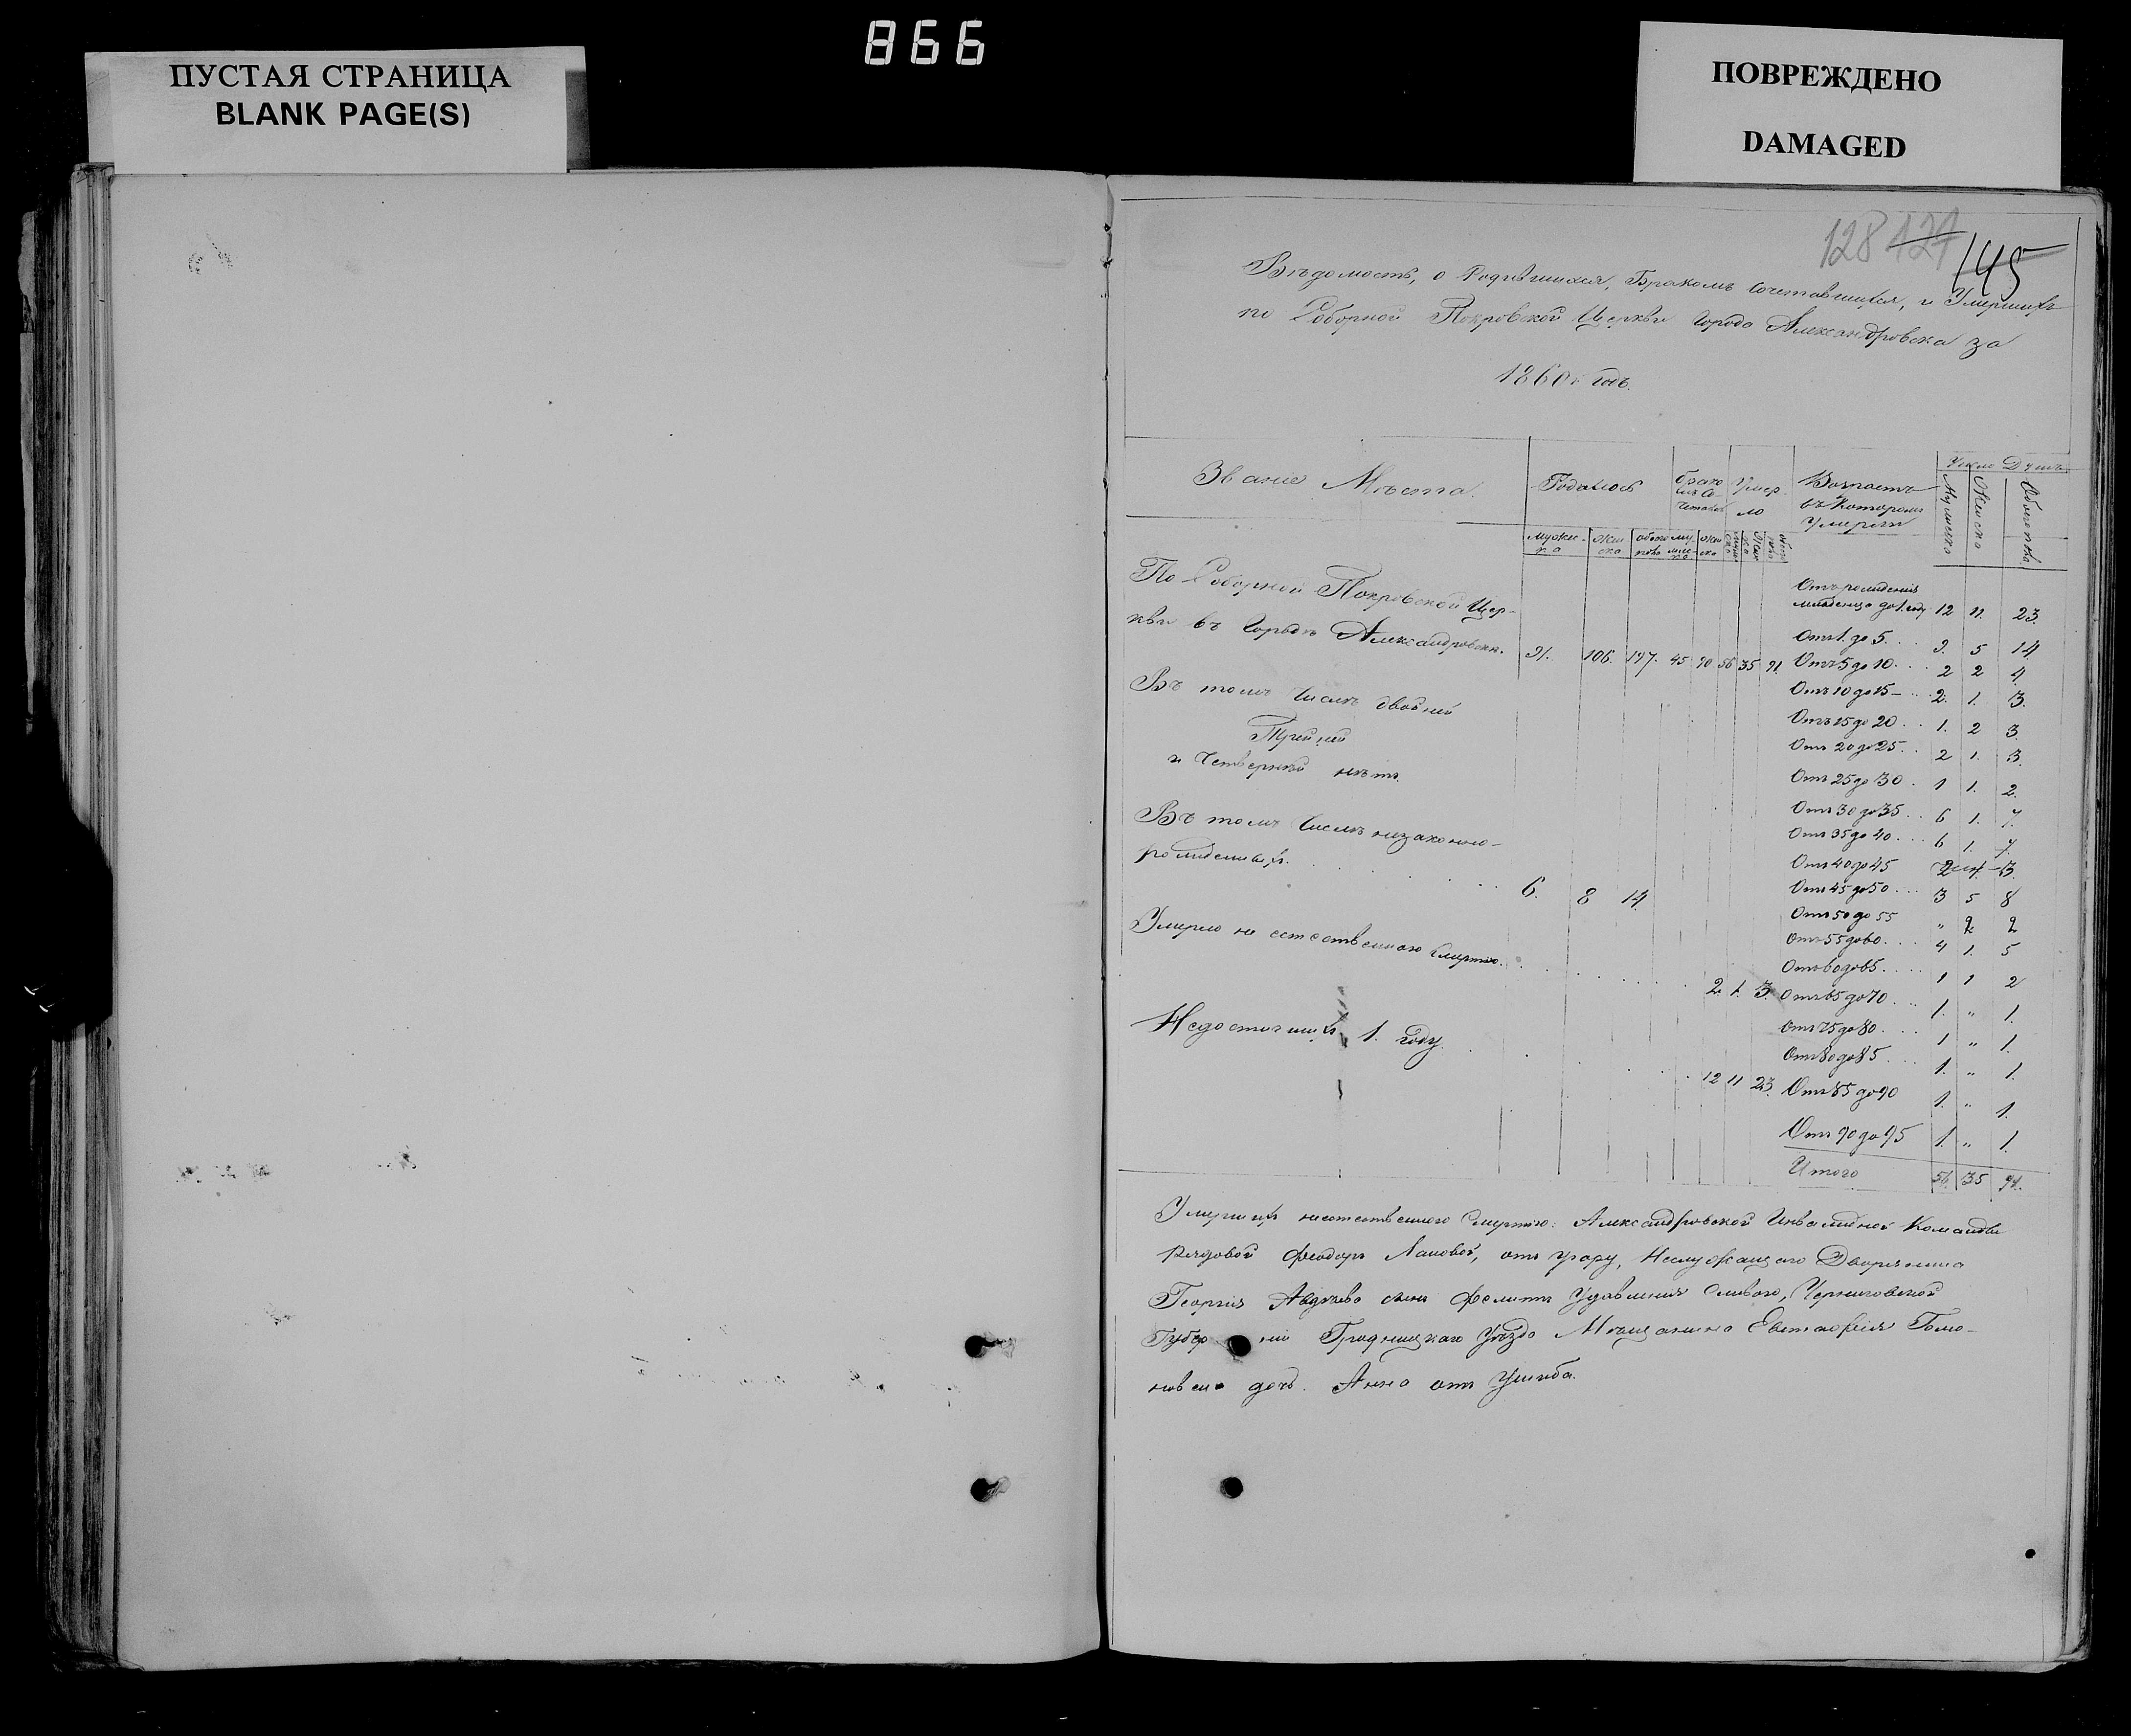 866
ПУСТАЯ СТРАНИЦА
BLANK PAGE(S)
ПОВРЕЖДЕНО
DAMAGED
128 127 145
Вѣдомость, о Родившихся, Бракомъ Сочетавшихся, и Умершихъ
по Соборной Покровской Церкви Города Александровска за
1860й годъ.
Званіе Мѣста. Родилось Умер- Возрастъ Число Душъ
ло въ Которомъ
Умерли
Мужеска Женска Обоего пола
По Соборной Покровской Цер-
кви въ Городѣ Александровскѣ. 91. 106. 197. 45 90 56 35 91.
Въ томъ Числѣ двойней
Тройней
и Четверней нѣтъ.
Въ томъ Числѣ незаконно-
рожденныхъ. 6. 8 14.
Умерло не естественною Смертію. 2. 1. 3.
Недостигшихъ 1. году. 12 11 23.
Отъ рожденія
младенца до 1. году 12 11. 23.
Отъ 1. до 5. 9. 5 14.
Отъ 5 до 10. 2 2 4.
Отъ 10 до 15 2. 1. 3.
Отъ 15 до 20. 1. 2 3.
Отъ 20 до 25. 2 1. 3.
Отъ 25 до 30. 1 1. 2.
Отъ 30 до 35. 6 1. 7.
Отъ 35 до 40. 6 1. 7.
Отъ 40 до 45 2 1. 3.
Отъ 45 до 50. 3 5 8
Отъ 50 до 55 " 2 2
Отъ 55 до 60. 4 1. 5
Отъ 60 до 65. 1 1 2
Отъ 65 до 70. 1. " 1.
Отъ 75 до 80. 1 " 1.
Отъ 80 до 85. 1. " 1.
Отъ 85 до 90 1. " 1.
Отъ 90 до 95 1. " 1.
Итого 56. 35 91.
Умершихъ неестественною Смертію: Александровской Инвалидной Команды
Рядовой Феодоръ Лановой, отъ угару, Неслужащаго Дворянина
Георгія Авдѣева сынъ
Губерніи Уѣзда Мѣщанина Евстафія
дочь. Анна отъ Ушиба.